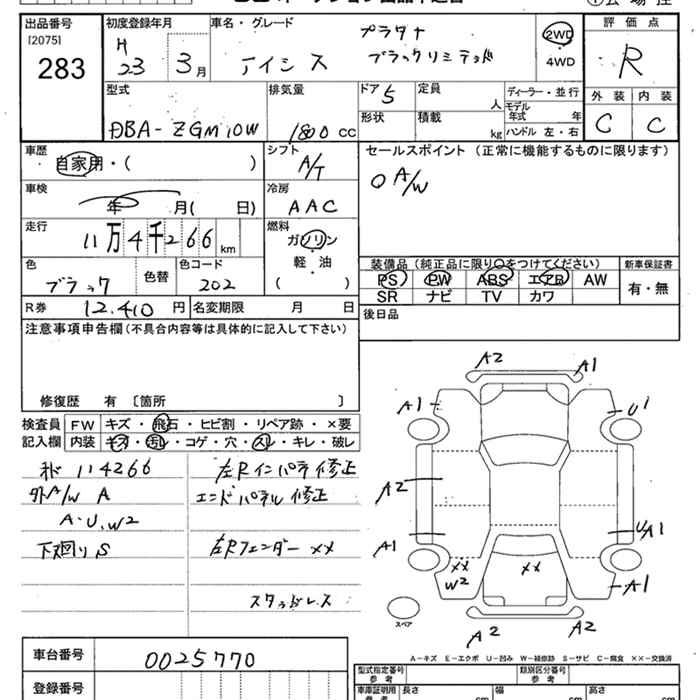 出品番号
[2075]
283
初度登録年月
H
23 3月
車名・グレード
アイシス
プラタナ
ブラックリミテッド
2WD
4WD
評価点
R
外装 内装
C C
型式
DBA-ZGM10W
排気量
1800 cc
ドア 5
形状
定員
人
積載
kg
ディーラー・並行
モデル年式 年
ハンドル 左・右
車歴
自家用・( )
シフト
A/T
セールスポイント (正常に機能するものに限ります)
○ A/W
車検
年 月( 日)
冷房
AAC
走行
11万4千266 km
燃料
ガソリン
軽・油
( )
色
ブラック
色替
色コード
202
装備品(純正品に限り○をつけてください)
PS PW ABS エアB AW
SR ナビ TV カワ
新車保証書
有・無
R券 12,410 円
名変期限 月 日
後日品
注意事項申告欄(不具合内容等は具体的に記入して下さい)
修復歴 有 〔箇所 〕
検査員 FW キズ・飛石・ヒビ割・リペア跡・×要
記入欄 内装 キズ・汚レ・コゲ・穴・スレ・キレ・破レ
114266
外A/W A
A・U、W2
下廻りS
左Rインパネ修正
エンドパネル修正
左Rフェンダー ××
スタッドレス
A2
A1
A1
U1
A2
A1
U/A1
××
W2
××
A1
A2
A2
スペア
A-キズ E-エクボ U-凹み W-補修跡 S-サビ C-腐食 ××-交換済
車台番号 0025770
登録番号
型式指定番号
参考
類別区分番号
参考
車庫証明用
参考
長さ cm
幅 cm
高さ cm